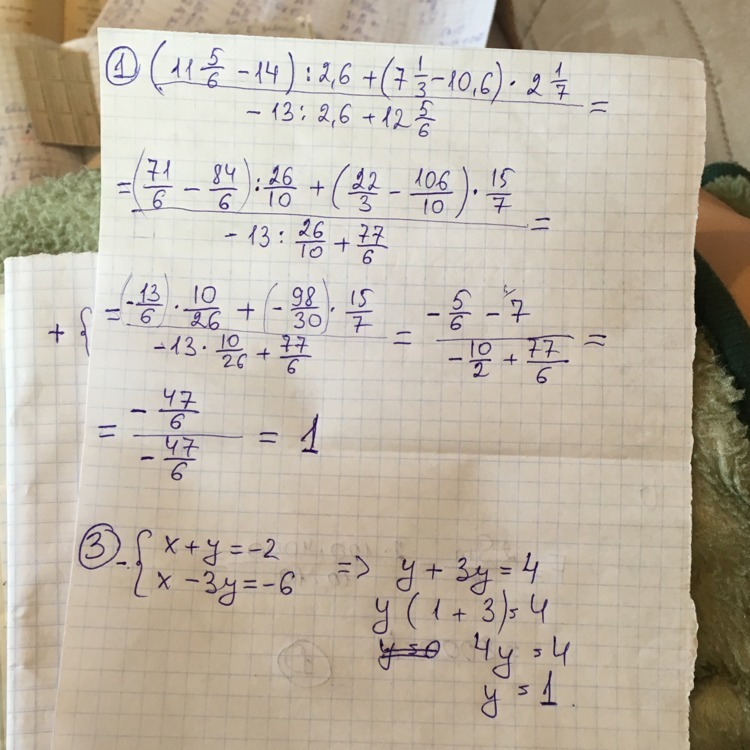 ① (11 5/6 - 14) : 2,6 + (7 1/3 - 10,6) · 2 1/7
- 13 : 2,6 + 12 5/6 =
= (71/6 - 84/6) : 26/10 + (22/3 - 106/10) · 15/7
- 13 : 26/10 + 77/6 =
+ {
= (-13/6) · 10/26 + (-98/30) · 15/7
-13 · 10/26 + 77/6 =
-5/6 - 7
-10/2 + 77/6 =
= -47/6
-47/6 = 1
③ - { x + y = -2
x - 3y = -6
=> y + 3y = 4
y (1 + 3) = 4
y = 0 4y = 4
y = 1